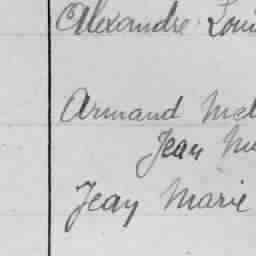 Alexandre Loui
Armand Mel
Jean M
Jean Marie